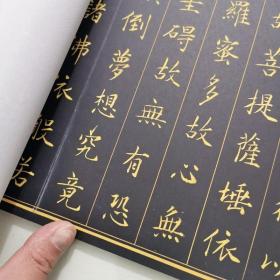 菩提薩埵依
羅蜜多故心無
罣礙故無有恐
倒夢想究竟
諸佛依般若